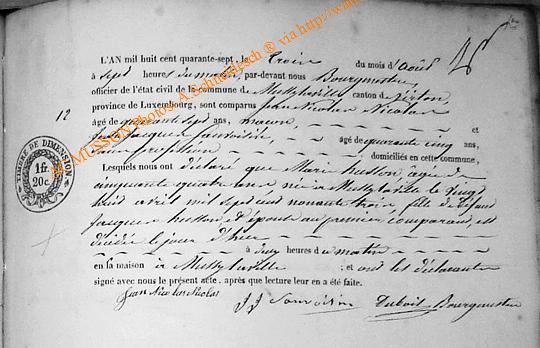 L'AN mil huit cent quarante-sept, le Trois du mois d'août
à sept heures du matin, par-devant nous Bourgmestre
officier de l'état civil de la commune de Mussylaville canton de Virton,
province de Luxembourg, sont comparus Jean Nicolas Nicolas
12
âgé de quarante sept ans, maçon, et
Jean Jacques âgé de quarante cinq ans,
sans profession domiciliés en cette commune,
Lesquels nous ont déclaré que Marie husson, agée de
cinquante quatre ans née à Mussylaville le vingt
huit avril mil sept cent nonante trois, fille de défunt
Jacques husson, et épouse au premier comparant, est
décédée le jour d'hier
à deux heures du matin
en la maison à Mussylaville ; et ont les déclarants
signé avec nous le présent acte, après que lecture leur en a été faite.
Jean Nicolas Nicolas
J J Dubois Bourgmestre
TIMBRE DE DIMENSION
1fr
20c.
MUSSON Photos A. Schneidesch ® via http://www